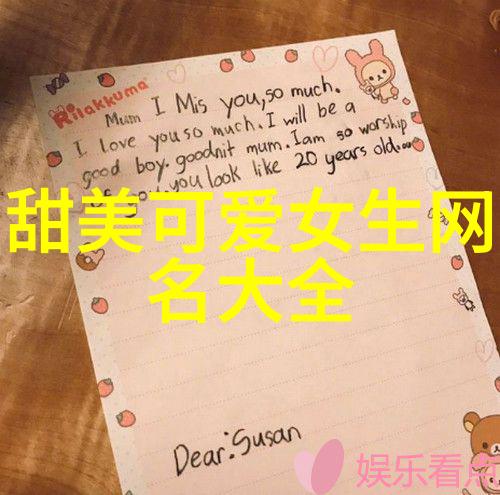 Rilakkuma
Mum I Mis you, so much.
I love you so much. I will be a
good boy. goodnit mum. I am so worship
of you. you look like 20 years old.
甜美可爱女生网
名大全
Dear: Susan
娱乐看点